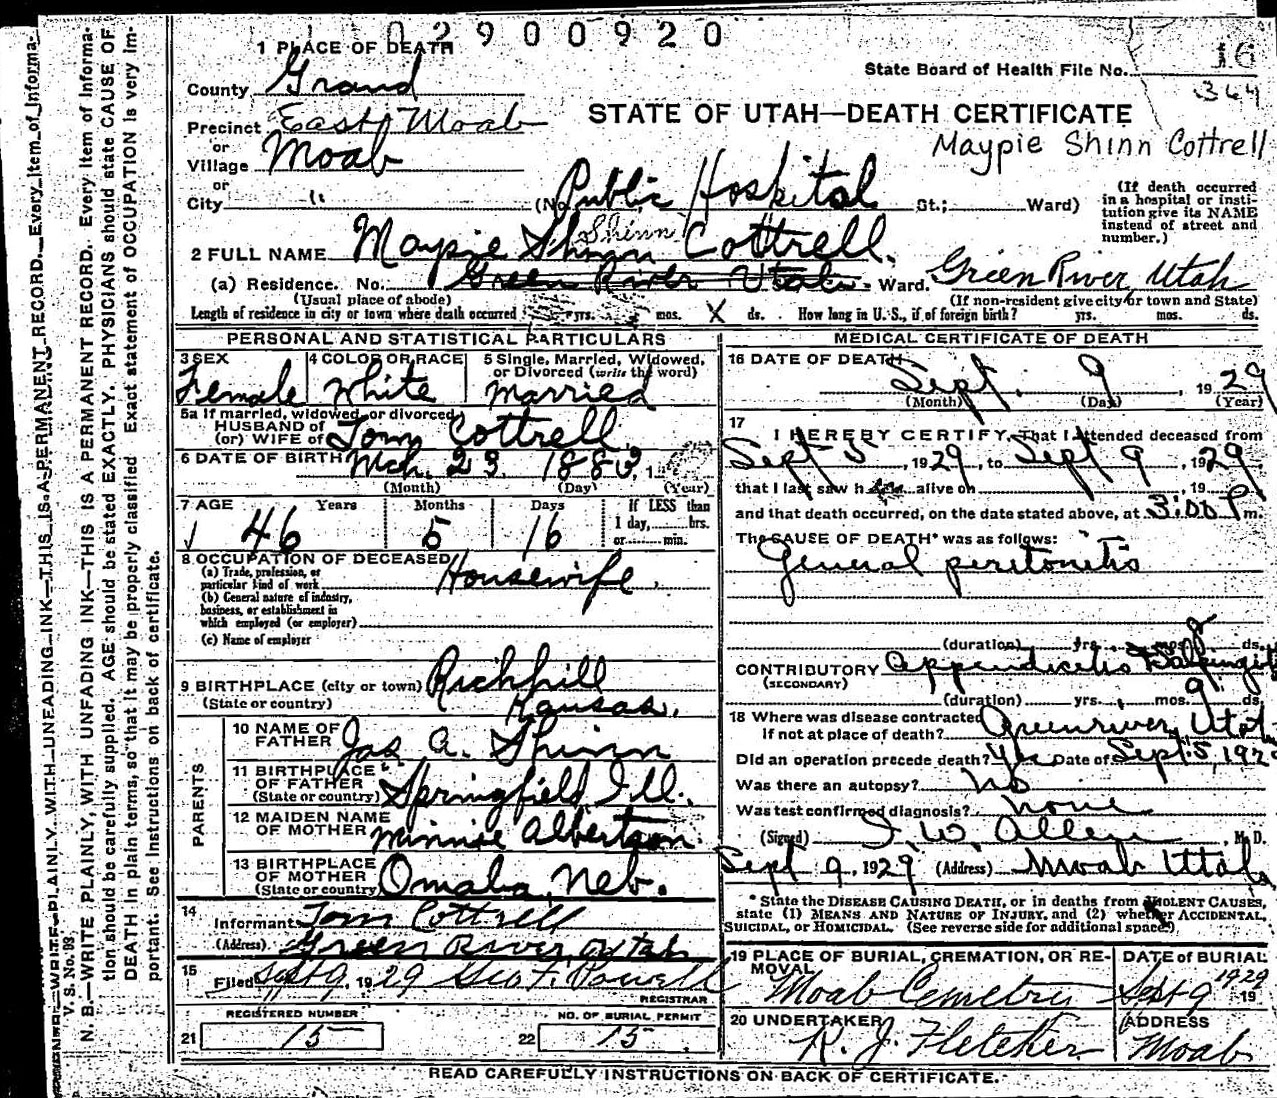 0 2 9 0 0 9 2 0
1 PLACE OF DEATH
State Board of Health File No. 16
364
County Grand
STATE OF UTAH—DEATH CERTIFICATE
Precinct East Moab
Maypie Shinn Cottrell
or
Village Moab
or
City " (No. Public Hospital St.; Ward)
(If death occurred in a hospital or institution give its NAME instead of street and number.)
Shinn
2 FULL NAME Maypie Shinn Cottrell.
(a) Residence. No. Green River Utah Ward. Green River, Utah
(Usual place of abode) (If non-resident give city or town and State)
Length of residence in city or town where death occurred yrs. mos. X ds. How long in U. S., if of foreign birth? yrs. mos. ds.
PERSONAL AND STATISTICAL PARTICULARS
3 SEX Female
4 COLOR OR RACE White
5 Single, Married, Widowed, or Divorced (write the word) Married
5a If married, widowed or divorced
HUSBAND of
(or) WIFE of Tom Cottrell
6 DATE OF BIRTH Mch. 23 1883, 1
(Month) (Day) (Year)
7 AGE 46 Years 5 Months 16 Days
If LESS than 1 day, hrs. or min.
8 OCCUPATION OF DECEASED Housewife.
(a) Trade, profession, or particular kind of work
(b) General nature of industry, business, or establishment in which employed (or employer)
(c) Name of employer
9 BIRTHPLACE (city or town) Richhill
(State or country) Kansas.
PARENTS
10 NAME OF FATHER Jas A. Shinn
11 BIRTHPLACE OF FATHER (State or country) Springfield Ill.
12 MAIDEN NAME OF MOTHER Minnie Albertson.
13 BIRTHPLACE OF MOTHER (State or country) Omaha, Neb.
14 Informant Tom Cottrell
(Address) Green River, Utah
15 Filed Sept 9, 1929 Geo F. Powell
REGISTRAR
REGISTERED NUMBER
21 15
NO. OF BURIAL PERMIT
22 15
MEDICAL CERTIFICATE OF DEATH
16 DATE OF DEATH
Sept. 9, 1929
(Month) (Day) (Year)
17
I HEREBY CERTIFY, That I attended deceased from
Sept 5, 1929, to Sept 9, 1929,
that I last saw her alive on , 19
and that death occurred, on the date stated above, at 3:00 P m.
The CAUSE OF DEATH* was as follows:
General peritonitis
(duration) yrs. mos. 2 ds.
CONTRIBUTORY Appendicitis Salpingitis
(SECONDARY)
(duration) yrs. mos. 9 ds.
18 Where was disease contracted
If not at place of death? Greenriver, Utah
Did an operation precede death? Yes Date of Sept 5, 192
Was there an autopsy? No
Was test confirmed diagnosis? none
(Signed) I. W. Allen, M. D.
Sept 9, 1929 (Address) Moab Uttah
* State the DISEASE CAUSING DEATH, or in deaths from VIOLENT CAUSES, state (1) MEANS AND NATURE OF INJURY, and (2) whether ACCIDENTAL, SUICIDAL, or HOMICIDAL. (See reverse side for additional space.)
19 PLACE OF BURIAL, CREMATION, OR REMOVAL
Moab Cemetry
DATE OF BURIAL
Sept 9 1929 19
20 UNDERTAKER
R. J. Fletcher
ADDRESS
Moab
READ CAREFULLY INSTRUCTIONS ON BACK OF CERTIFICATE.
V. S. No. 93
WRITE PLAINLY WITH UNFADING INK—THIS IS A PERMANENT RECORD. Every Item of Informa-
N. B.—WRITE PLAINLY, WITH UNFADING INK—THIS IS A PERMANENT RECORD. Every item of Informa-
tion should be carefully supplied. AGE should be stated EXACTLY. PHYSICIANS should state CAUSE OF
DEATH in plain terms, so that it may be properly classified. Exact statement of OCCUPATION is very im-
portant. See instructions on back of certificate.